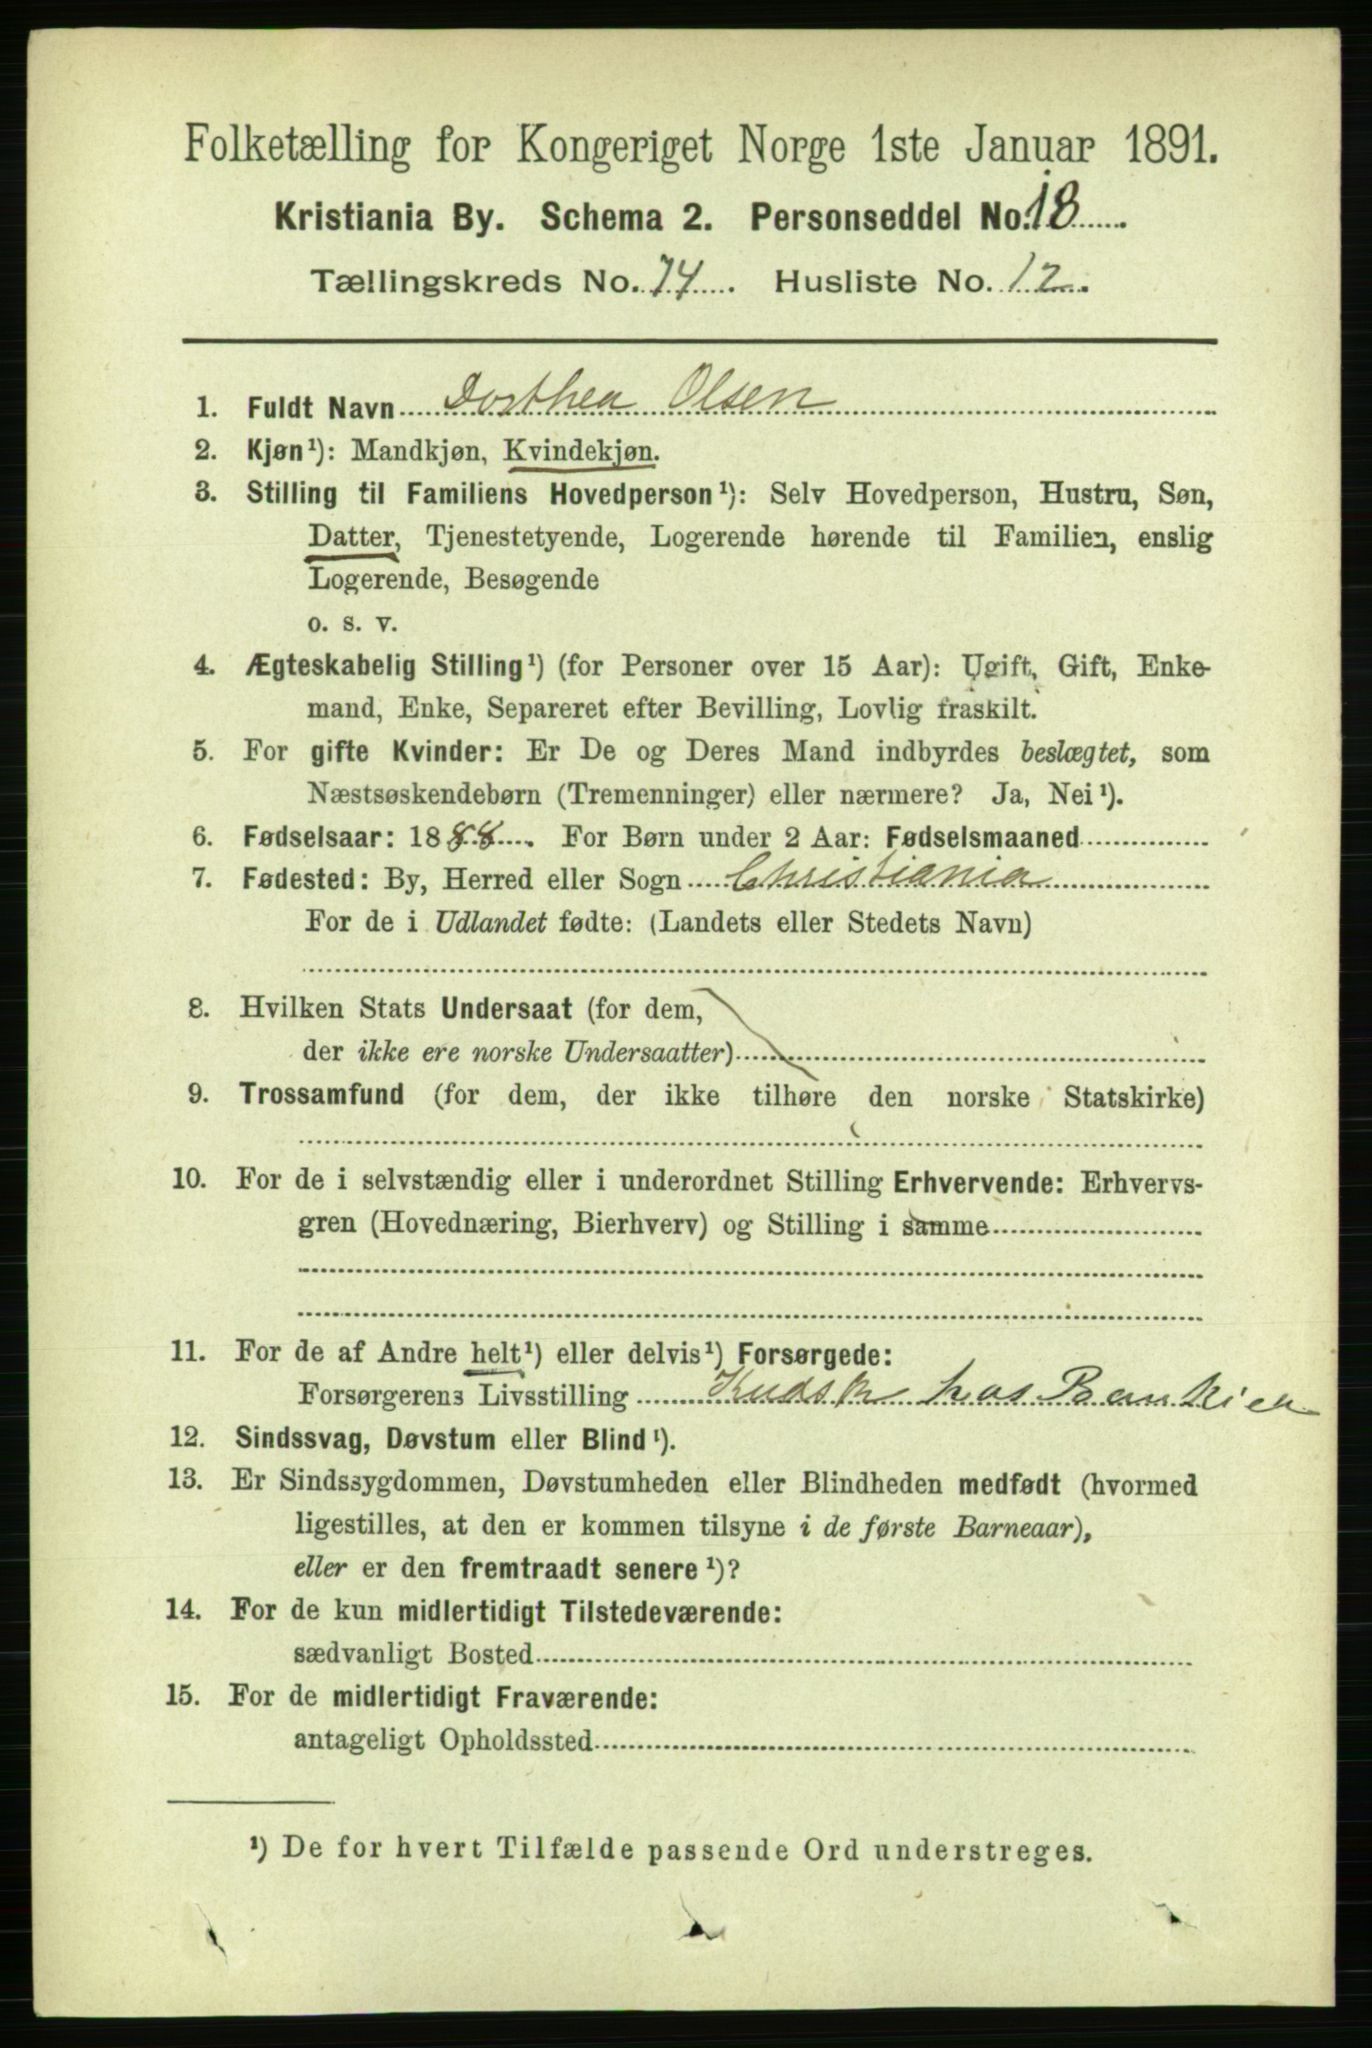 Folketælling for Kongeriget Norge 1ste Januar 1891.
Kristiania By. Schema 2. Personseddel No. 18
Tællingskreds No. 74. Husliste No. 12.
1. Fuldt Navn Dorthea Olsen
2. Kjøn¹): Mandkjøn, Kvindekjøn.
3. Stilling til Familiens Hovedperson¹): Selv Hovedperson, Hustru, Søn,
Datter, Tjenestetyende, Logerende hørende til Familien, enslig
Logerende, Besøgende
o. s. v.
4. Ægteskabelig Stilling¹) (for Personer over 15 Aar): Ugift, Gift, Enke-
mand, Enke, Separeret efter Bevilling, Lovlig fraskilt.
5. For gifte Kvinder: Er De og Deres Mand indbyrdes beslægtet, som
Næstsøskendebørn (Tremenninger) eller nærmere? Ja, Nei¹).
6. Fødselsaar: 1888. For Børn under 2 Aar: Fødselsmaaned
7. Fødested: By, Herred eller Sogn Christiania
For de i Udlandet fødte: (Landets eller Stedets Navn)
8. Hvilken Stats Undersaat (for dem,
der ikke ere norske Undersaatter)
9. Trossamfund (for dem, der ikke tilhøre den norske Statskirke)
10. For de i selvstændig eller i underordnet Stilling Erhvervende: Erhvervs-
gren (Hovednæring, Bierhverv) og Stilling i samme
11. For de af Andre helt¹) eller delvis¹) Forsørgede:
Forsørgerens Livsstilling Kudsk hos
12. Sindssvag, Døvstum eller Blind¹).
13. Er Sindssygdommen, Døvstumheden eller Blindheden medfødt (hvormed
ligestilles, at den er kommen tilsyne i de første Barneaar),
eller er den fremtraadt senere¹)?
14. For de kun midlertidigt Tilstedeværende:
sædvanligt Bosted
15. For de midlertidigt Fraværende:
antageligt Opholdssted
¹) De for hvert Tilfælde passende Ord understreges.